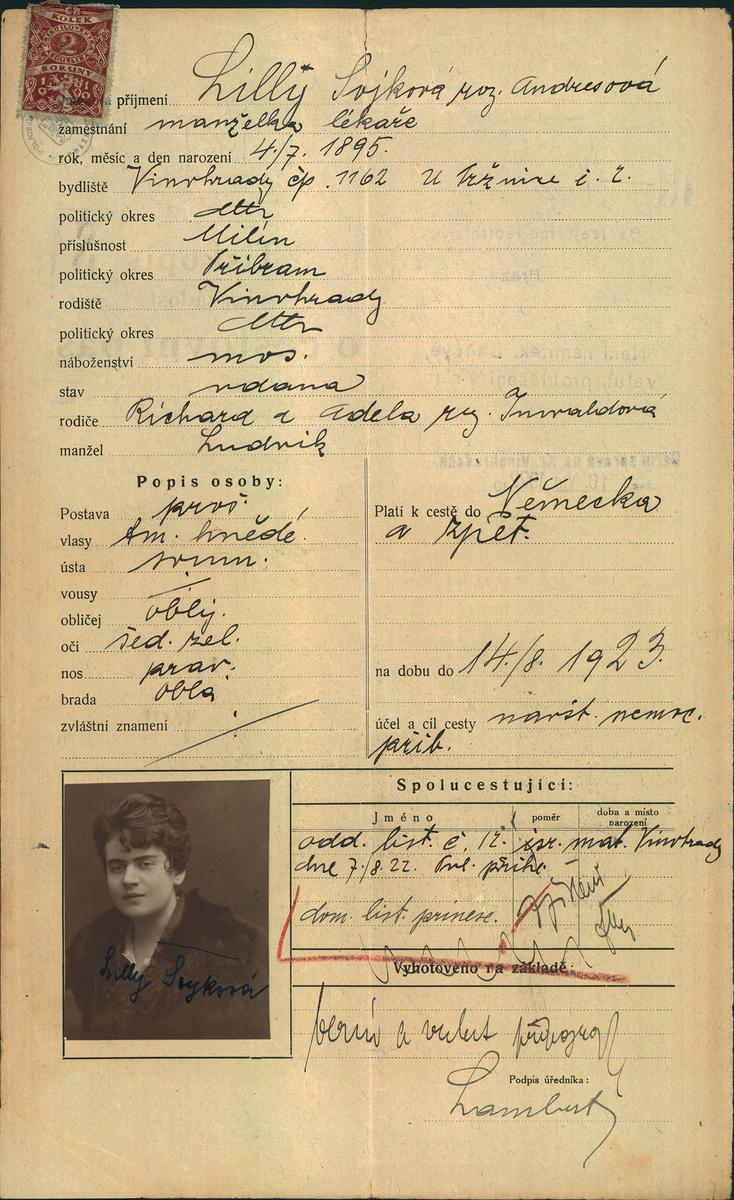 KOLEK
2
KORUNY
příjmení Lilly Svjková roz. Andresová
zaměstnání manželka lékaře
rok, měsíc a den narození 4./7. 1895.
bydliště Vinohrady čp. 1162 U Tržnice č. 2.
politický okres dtto
příslušnost Milín
politický okres Příbram
rodiště Vinohrady
politický okres dtto
náboženství mos.
stav vdaná
rodiče Richard a Adela roz. Inwaldová
manžel Ludvík
Popis osoby:
Postava prost.
vlasy tm. hnědé.
ústa soum.
vousy
obličej oblý.
oči šed. zel.
nos prav.
brada oblá
zvláštní znamení
Platí k cestě do Německa
a zpět.
na dobu do 14./8. 1923.
účel a cíl cesty navšt. nemoc.
příb.
Spolucestující:
Jméno poměr doba a místo narození
odd. list. č. 12. isr. mat. Vinohrady
dne 7./8. 22.
dom. list. prinese.
Vyhotoveno na základě
Podpis úředníka:
Lilly Svyková